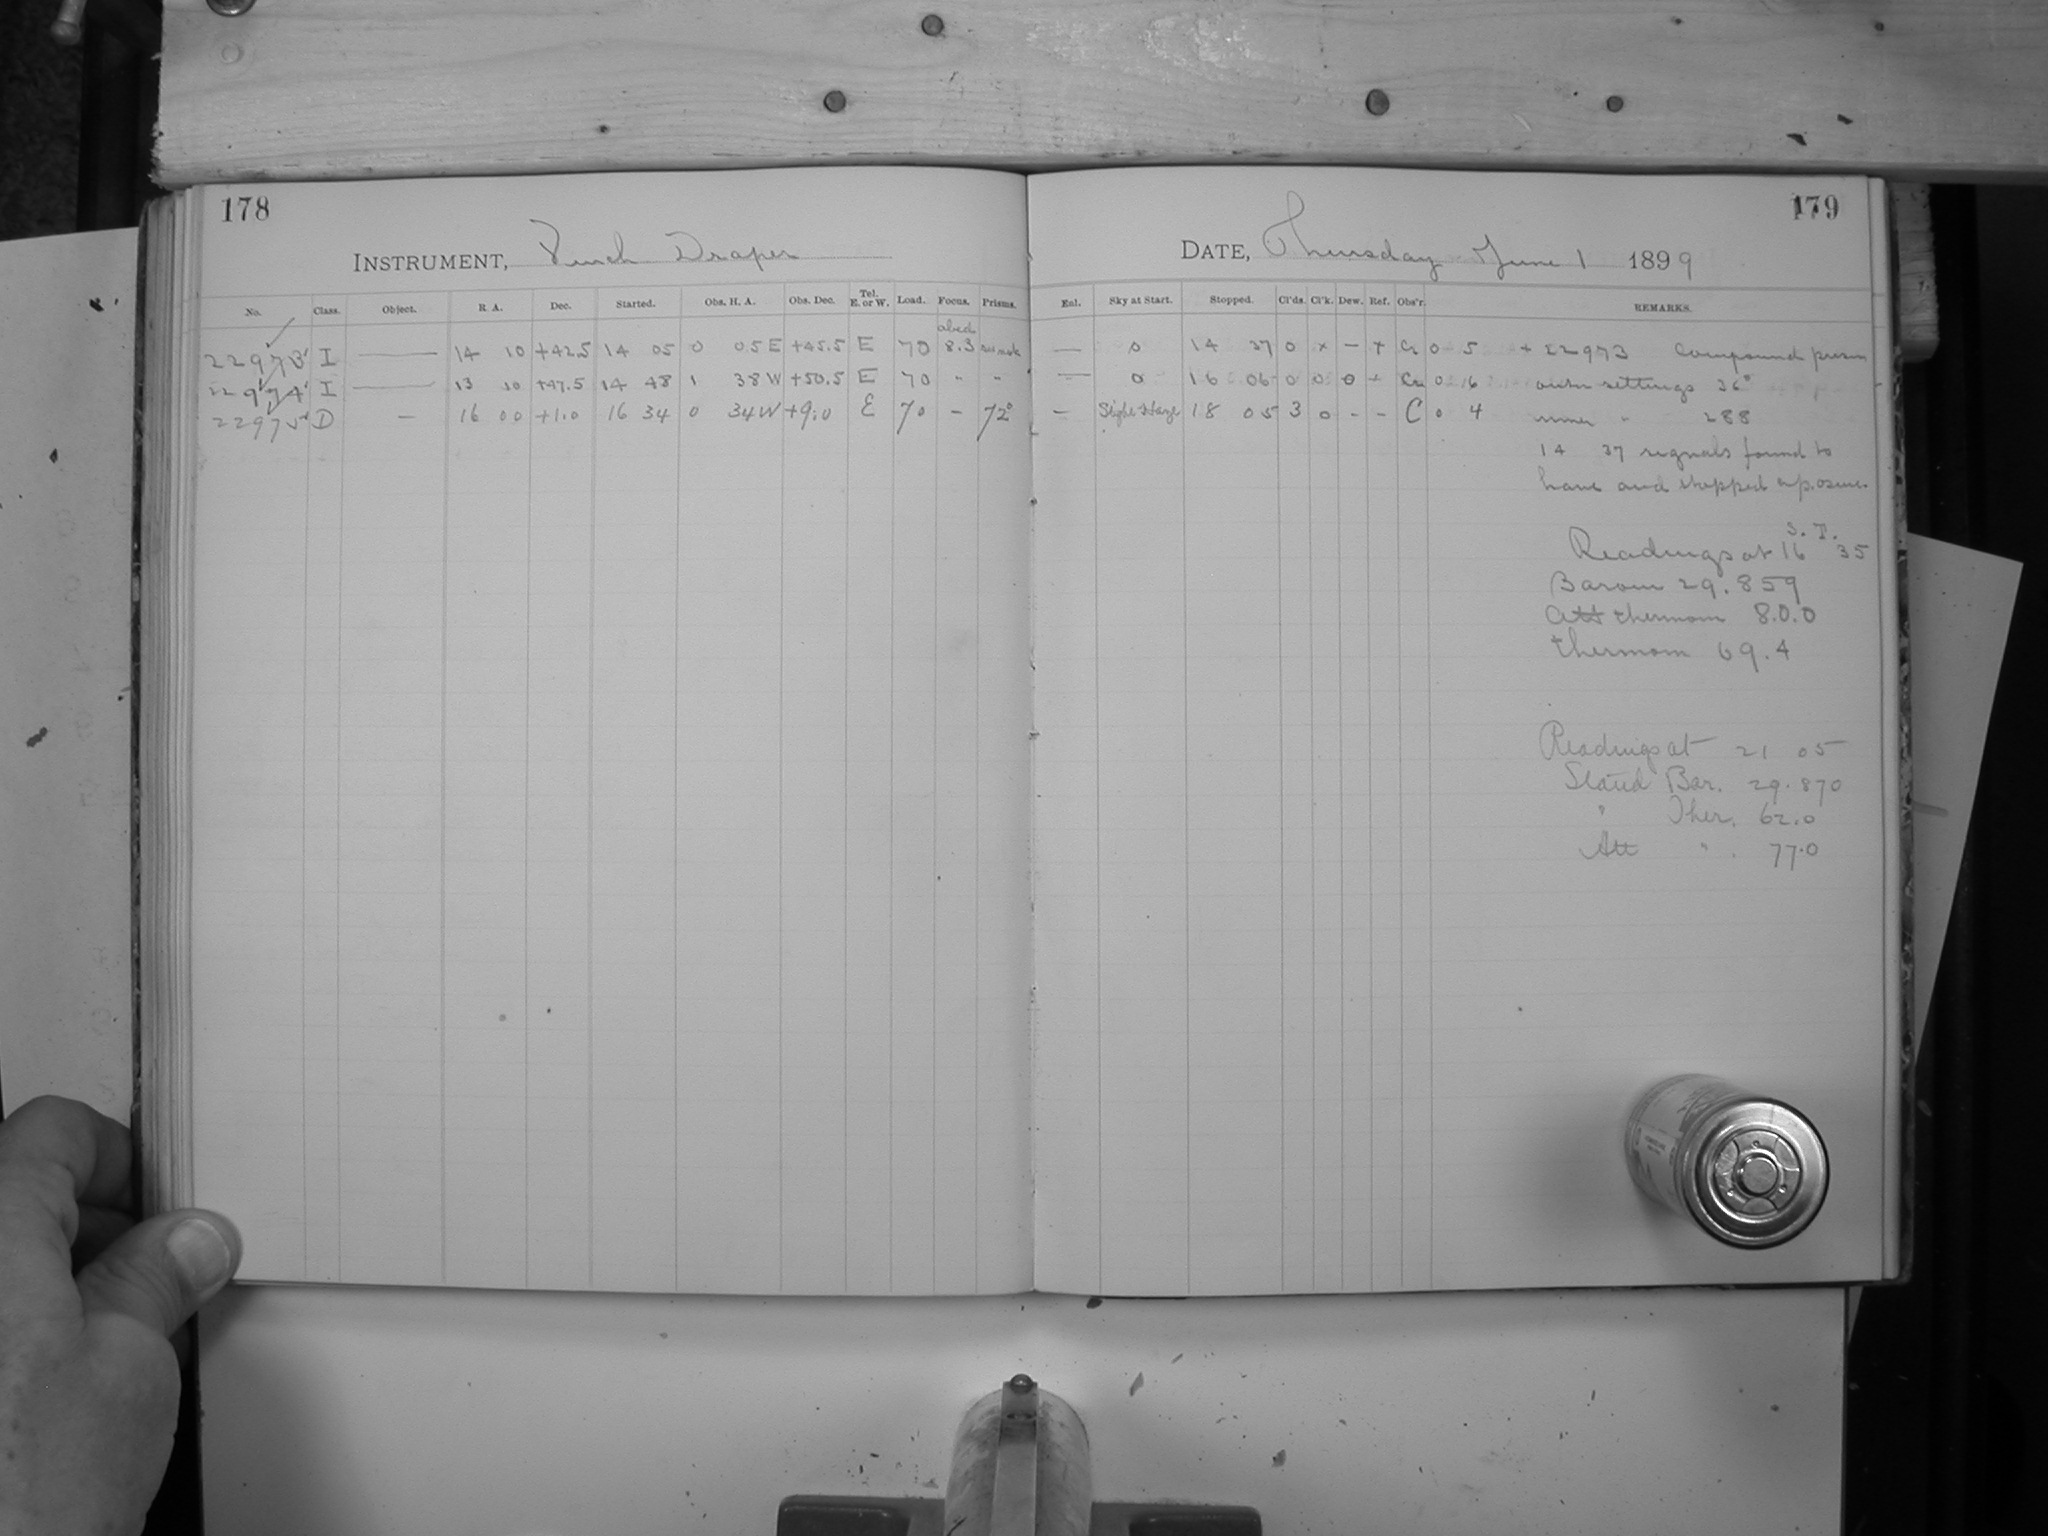 178
INSTRUMENT, Draper
No. Class. Object. R. A. Dec. Started. Obs. H. A. Obs. Dec. Tel. E. or W. Load. Focus. Prisms.
abcd
22973 I — 14 10 +42.5 14 05 0 05 E +45.5 E 70 8.3
22974 I — 13 10 +47.5 14 48 1 38 W +50.5 E 70 " "
22975 D — 16 00 +1.0 16 34 0 34 W +9.0 E 70 - 72°
179
DATE, Thursday June 1 1899
Enl. Sky at Start. Stopped. Cl'ds. Cl'k. Dew. Ref. Obs'r. REMARKS.
— 0 14 37 0 x - + Cr 0 5 + 22973 Compound prism
— 0 16 06 0 0 0 + Cr 0 6 settings 36°
— Slight Haze 18 05 3 0 - - C 0 4 inner " 288
14 37 signals found to
have and stopped exposure.
S. T.
Readings at 16 35
Barom 29.859
Att thermom 8.0.0
thermom 69.4
Readings at 21 05
Stand Bar. 29.870
" Ther. 62.0
Att " . 77.0